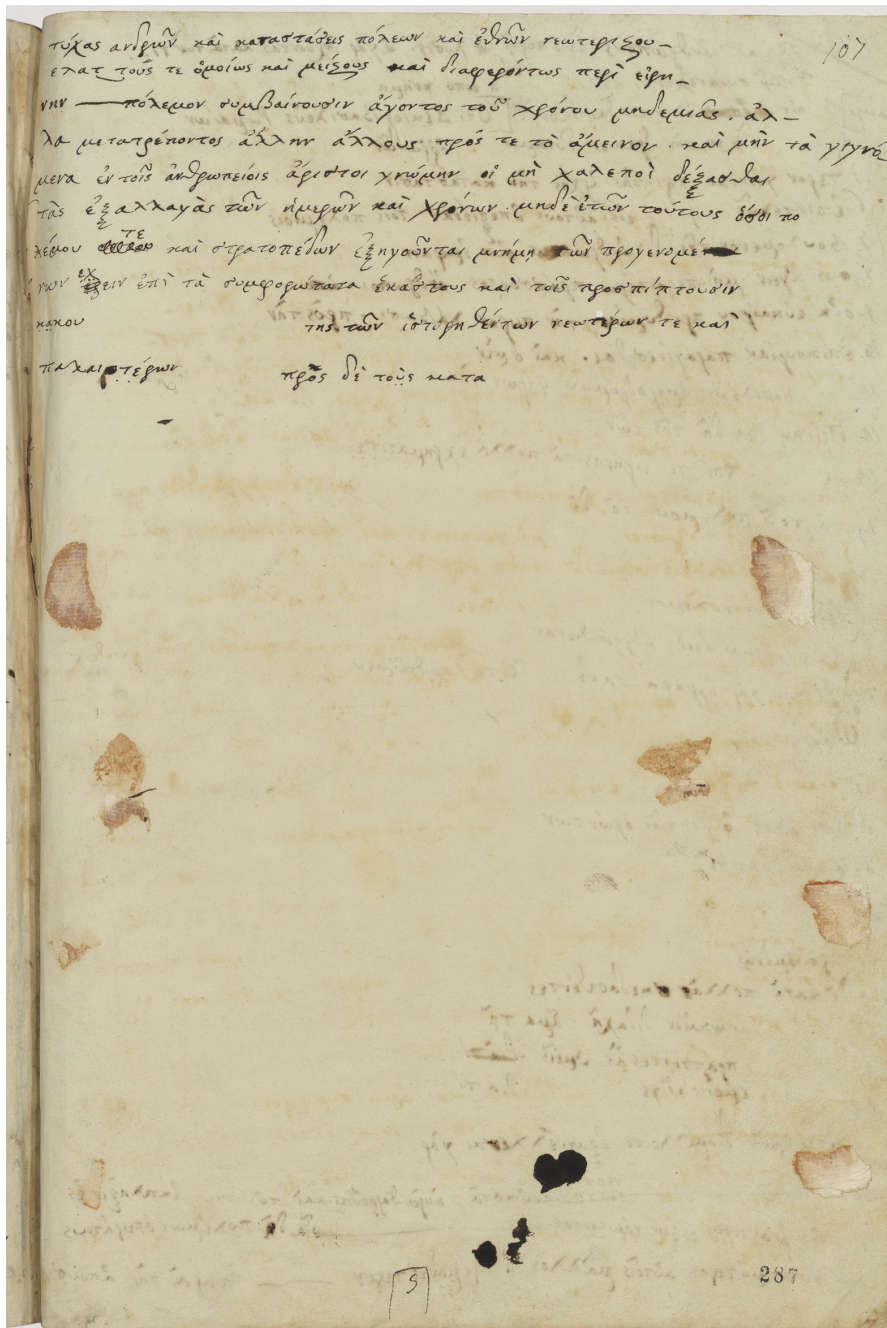 107
τύχας ἀνδρῶν καὶ καταστάσεις πόλεων καὶ ἐθνῶν νεωτεριζου_
ελατ τούς τε ὁμοίως καὶ μείζους καὶ διαφερόντως περὶ εἰρη_
νην — πόλεμον συμβαίνουσιν ἄγοντος τοῦ χρόνου μηδεμιᾶς. ἀλ_
λα μετατρέποντος ἄλλην ἄλλους πρός τε τὸ ἄμεινον. καὶ μὴν τὰ γιγνό
μενα ἐν τοῖς ἀνθρωπείοις ἄριστοι γνώμην οἱ μὴ χαλεποὶ δέξασθαι
τὰς ἐξαλλαγὰς τῶν ἡμερῶν καὶ χρόνων. μηδὲ ἐτῶν τούτους ὅσοι πο
λέμου τε καὶ στρατοπέδων ἐξηγοῦνται μνήμῃ τῶν προγενομέ
νων εχειν ἐπὶ τὰ συμφορώτατα ἑκάστους καὶ τοῖς προσπίπτουσιν
κακου της τῶν ἱστορηθέντων νεωτέρων τε καὶ
παλαιοτέρων πρὸς δὲ τοὺς κατα
5
287